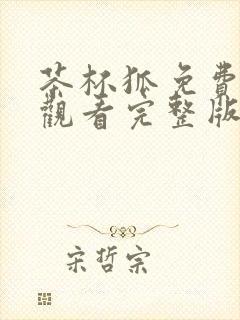 茶杯狐免費
觀看完整版
宋哲宗